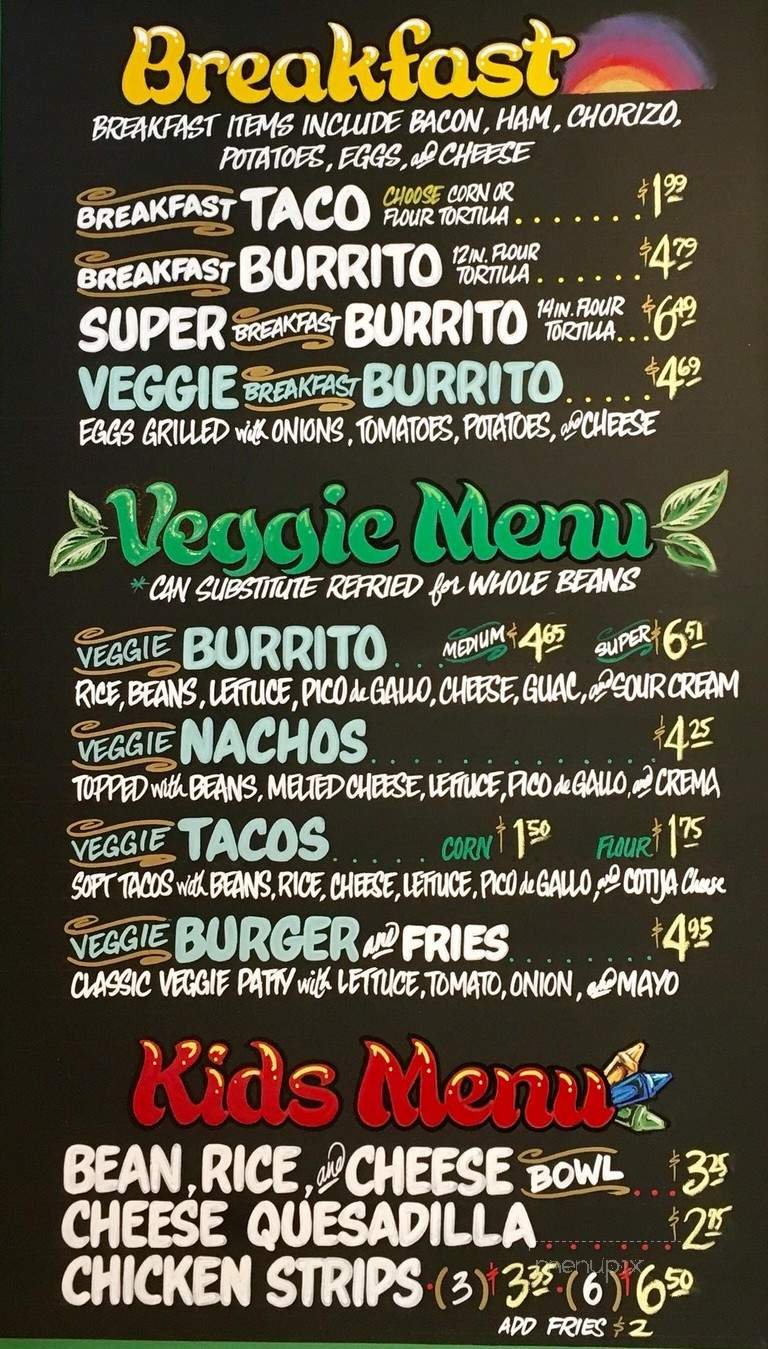 Breakfast
BREAKFAST ITEMS INCLUDE BACON, HAM, CHORIZO,
POTATOES, EGGS, and CHEESE
BREAKFAST TACO CHOOSE CORN OR FLOUR TORTILLA ........ $1.99
BREAKFAST BURRITO 12 IN. FLOUR TORTILLA ....... $4.79
SUPER BREAKFAST BURRITO 14 IN. FLOUR TORTILLA ... $6.49
VEGGIE BREAKFAST BURRITO ...... $4.69
EGGS GRILLED with ONIONS, TOMATOES, POTATOES, and CHEESE
Veggie Menu
*CAN SUBSTITUTE REFRIED for WHOLE BEANS
VEGGIE BURRITO ... MEDIUM $4.65 SUPER $6.51
RICE, BEANS, LETTUCE, PICO de GALLO, CHEESE, GUAC, and SOUR CREAM
VEGGIE NACHOS ............... $4.25
TOPPED with BEANS, MELTED CHEESE, LETTUCE, PICO de GALLO, and CREMA
VEGGIE TACOS ...... CORN $1.50 FLOUR $1.75
SOFT TACOS with BEANS, RICE, CHEESE, LETTUCE, PICO de GALLO, and COTIJA Cheese
VEGGIE BURGER and FRIES ........ $4.95
CLASSIC VEGGIE PATTY with LETTUCE, TOMATO, ONION, and MAYO
Kids Menu
BEAN, RICE, and CHEESE BOWL ... $3.25
CHEESE QUESADILLA ....... $2.95
CHICKEN STRIPS · (3) $3.35 · (6) $6.50
ADD FRIES $2
menupix